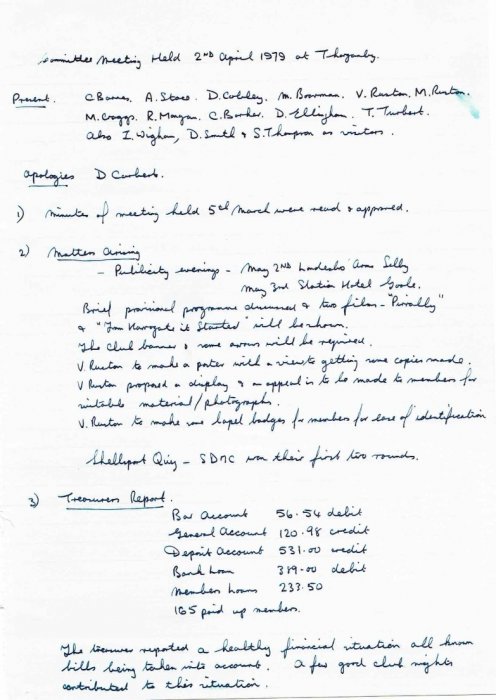 Committee Meeting Held 2ND April 1979 at Thorganby.
Present. C Barnes, A. Stares. D. Cobbley, M. Bowman. V. Ruston, M. Ruston.
M. Craggs. R. Morgan. C. Barker. D. Ellingham. T.
Also I. Wigham, D. Smith & S. Thompson as visitors.
Apologies D
1) Minutes of meeting held 5th March were read & approved.
2) Matters Arising
- Publicity evenings - May 2ND Londesbro Arms Selby
May 3rd Station Hotel Goole.
Brief provisional programme discussed & two films - "
& "From Harrogate it Started" will be shown.
The Club banner & some awards will be required.
V. Ruston to make a poster with a view to getting some copies made.
V Ruston proposed a display & an appeal is to be made to members for
suitable material/photographs.
V. Ruston to make some lapel badges for members for ease of identification
Shellsport Quiz - SDMC won their first two rounds.
3) Treasurers Report.
Bar Account 56.54 debit
General Account 120.98 credit
Deposit Account 531.00 credit
Bank Loan 319.00 debit
Members Loans 233.50
165 paid up members.
The treasurer reported a healthy financial situation all known
bills being taken into account. A few good club nights
contributed to this situation.